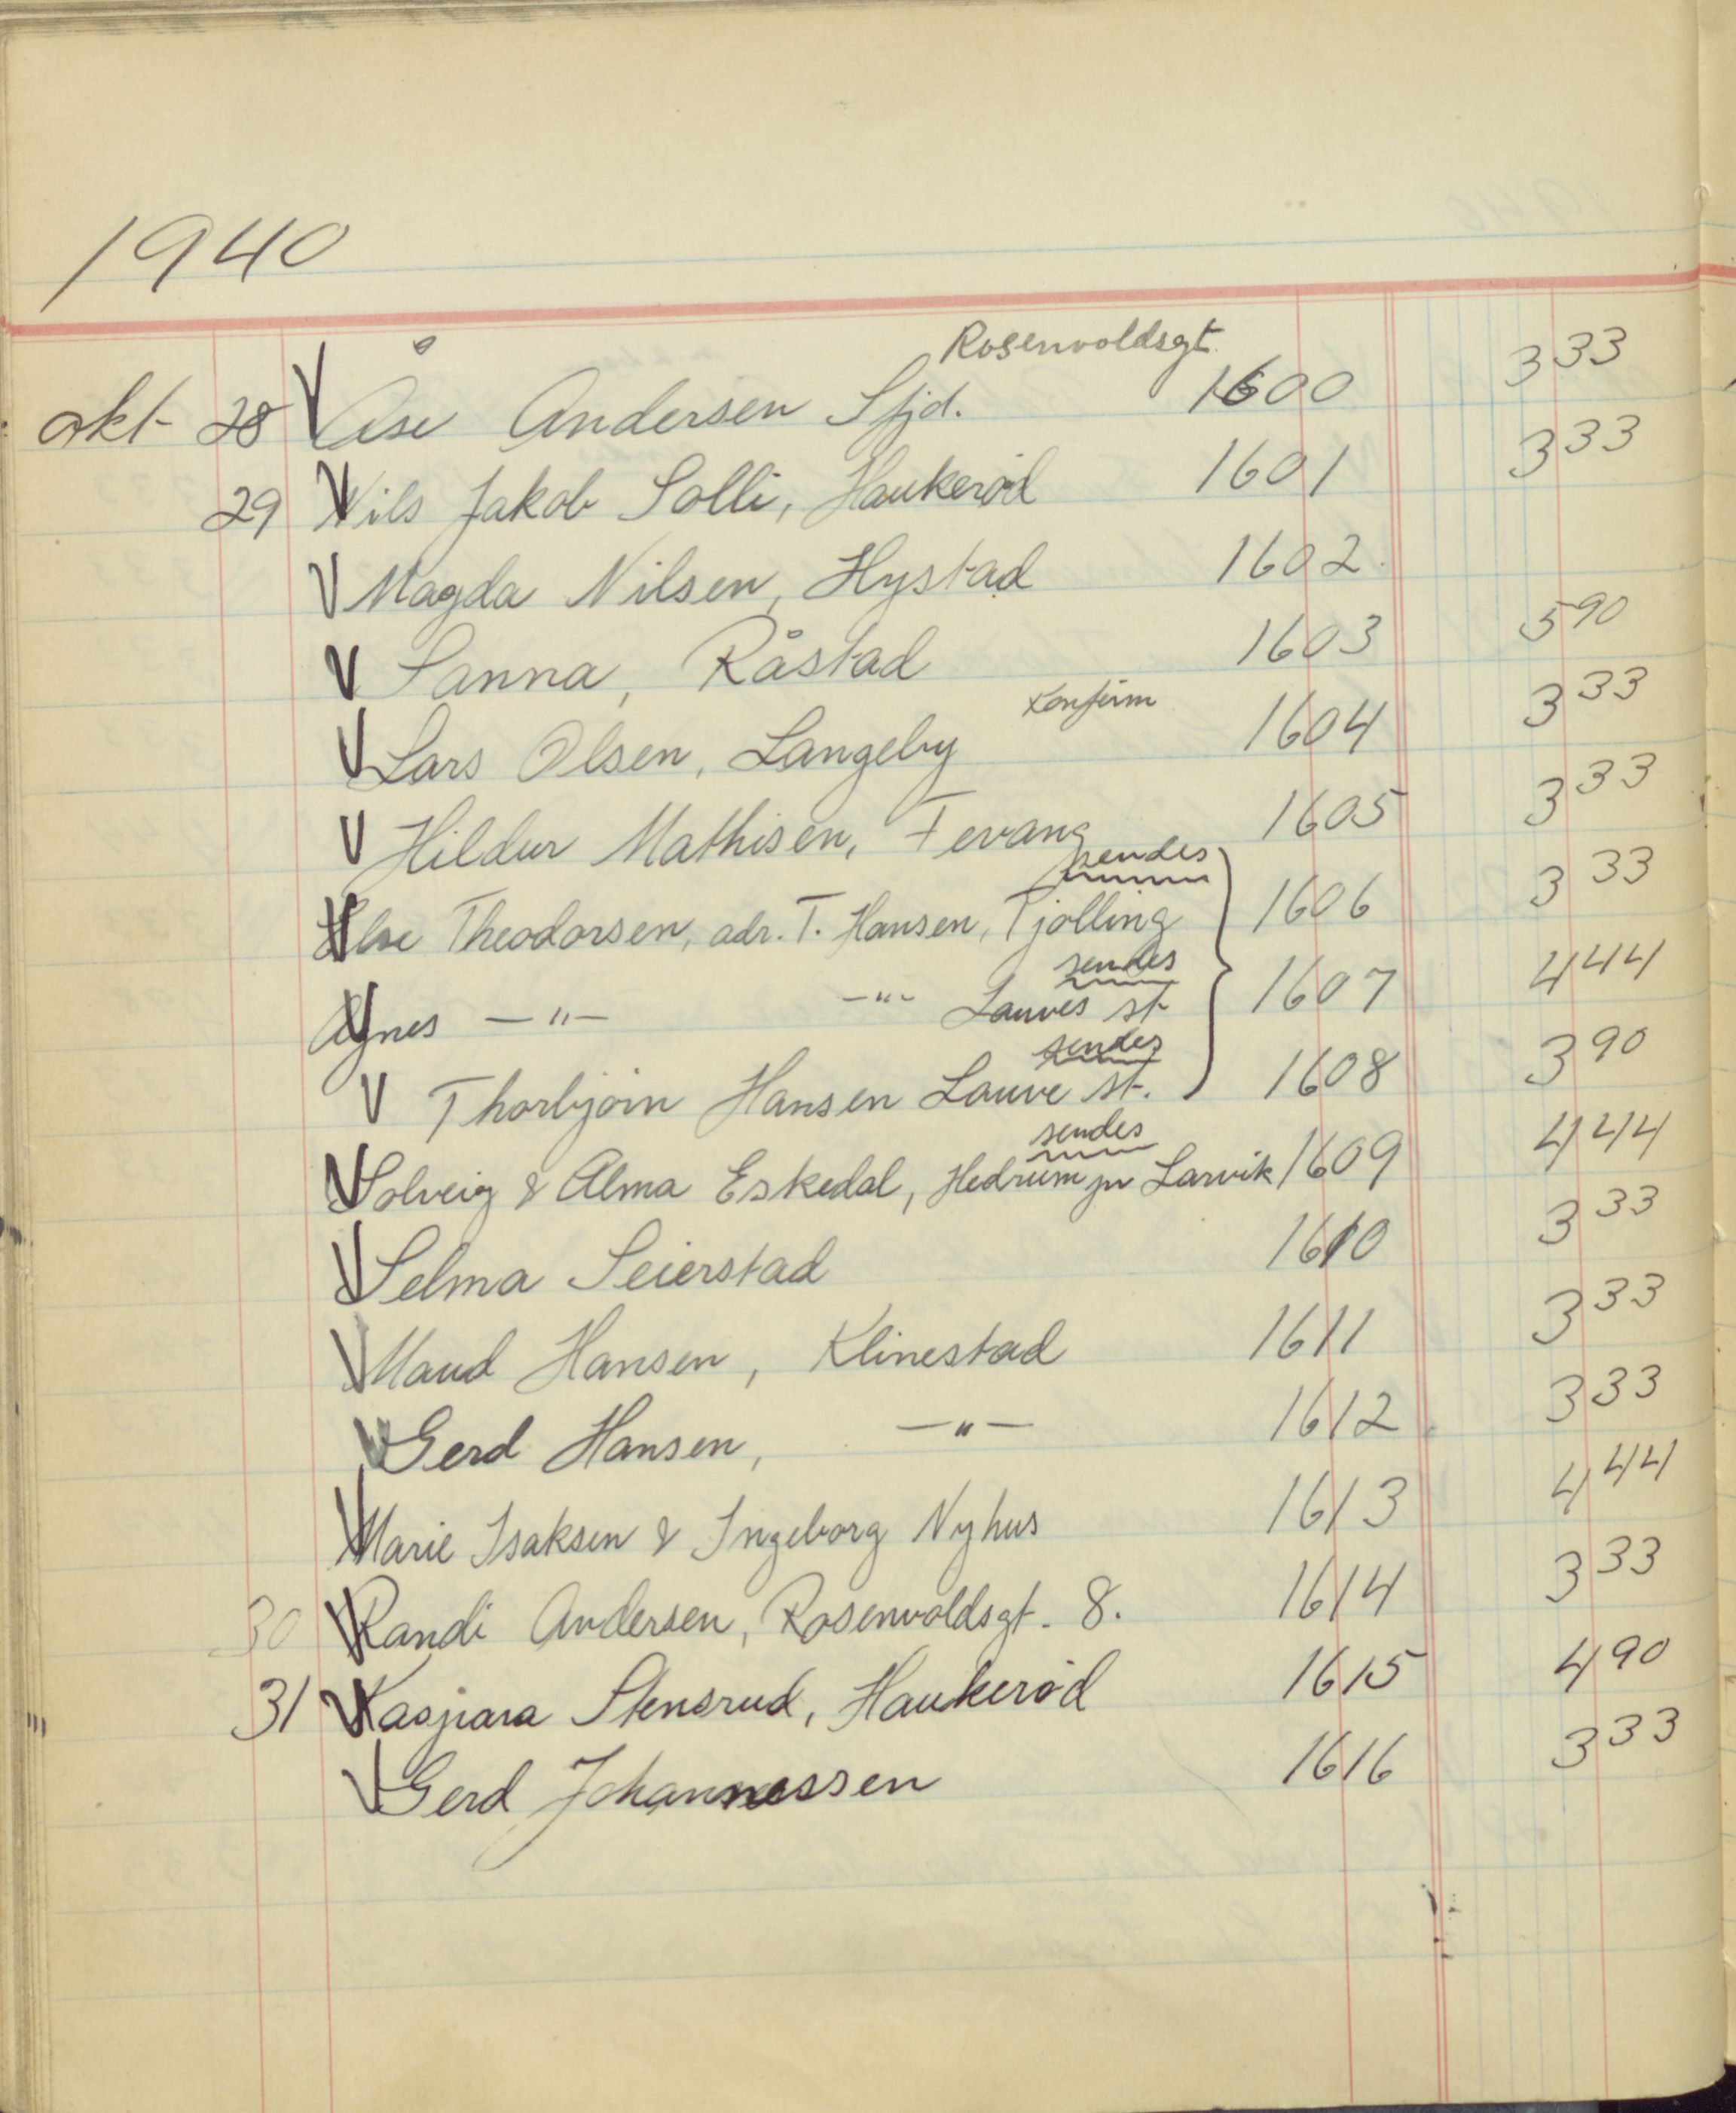 1940
Rosenvoldsgt.
okt 28 V Åse Andersen Sfjd. 1600 3 33
29 V Nils Jakob Solli, Haukerød 1601 3 33
V Magda Nilsen, Hystad 1602
V Sanna, Råstad 1603 5 90
Konfirm
V Lars Olsen, Langeby 1604 3 33
V Hildur Mathisen, Fevang 1605 3 33
sendes
V Else Theodorsen, adr. T. Hansen, Tjølling 1606 3 33
sendes
V Agnes —"— —"— Lauves st 1607 4 44
sendes
V Thorbjørn Hansen Lauve st. 1608 3 90
sendes
V Solveig & Alma Eskedal, Hedrum pr Larvik 1609 4 44
V Selma Seierstad 1610 3 33
V Maud Hansen, Klinestad 1611 3 33
V Gerd Hansen, —"— 1612 3 33
V Marie Isaksen & Ingeborg Nyhus 1613 4 44
30 V Randi Andersen, Rosenvoldsgt. 8. 1614 3 33
31 V Kaspara Stensrud, Haukerød 1615 4 90
V Gerd Johannessen 1616 3 33